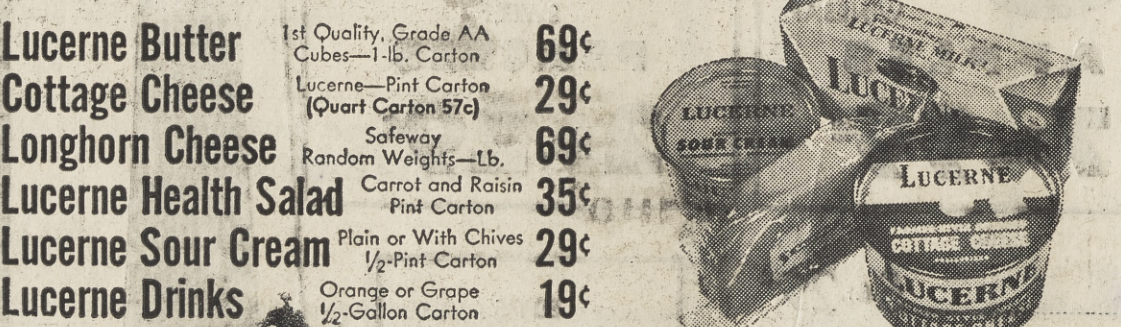 Lucerne Butter 1st Quality, Grade AA Cubes—1-lb. Carton 69¢
Cottage Cheese Lucerne—Pint Carton (Quart Carton 57c) 29¢
Longhorn Cheese Safeway Random Weights—Lb. 69¢
Lucerne Health Salad Carrot and Raisin Pint Carton 35¢
Lucerne Sour Cream Plain or With Chives ½-Pint Carton 29¢
Lucerne Drinks Orange or Grape ½-Gallon Carton 19¢
LUCERNE MILK
LUCERNE
LUCERNE
SOUR CREAM
LUCERNE
COTTAGE CHEESE
LUCERNE